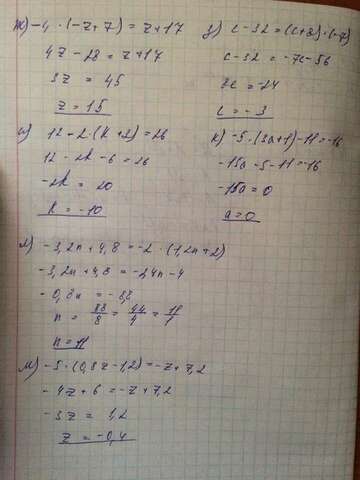 ж) -4 · (-z + 7) = z + 17
4z - 28 = z + 17
3z = 45
z = 15
з) c - 32 = (c + 8) · (-7)
c - 32 = -7c - 56
8c = -24
c = -3
и) 12 - 2 · (k + 3) = 26
12 - 2k - 6 = 26
-2k = 20
k = -10
к) -5 · (3a + 1) - 11 = -16
-15a - 5 - 11 = -16
-15a = 0
a = 0
л) -3,2n + 4,8 = -2 · (1,2n + 2)
-3,2n + 4,8 = -2,4n - 4
-0,8n = -8,8
n = 88/8 = 44/4 = 11/1
n = 11
м) -5 · (0,8z - 1,2) = -z + 7,2
-4z + 6 = -z + 7,2
-3z = 1,2
z = -0,4